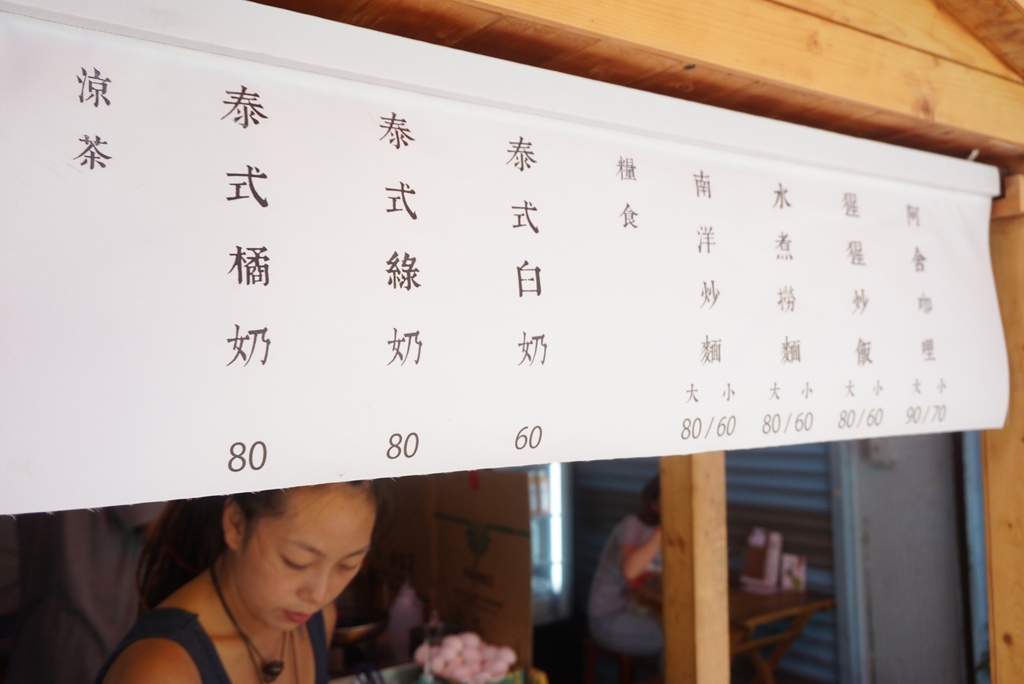 涼茶
泰式橘奶 80
泰式綠奶 80
泰式白奶 60
糧食
南洋炒麵 大 小 80/60
水煮撈麵 大 小 80/60
猩猩炒飯 大 小 80/60
阿舍咖哩 大 小 90/70